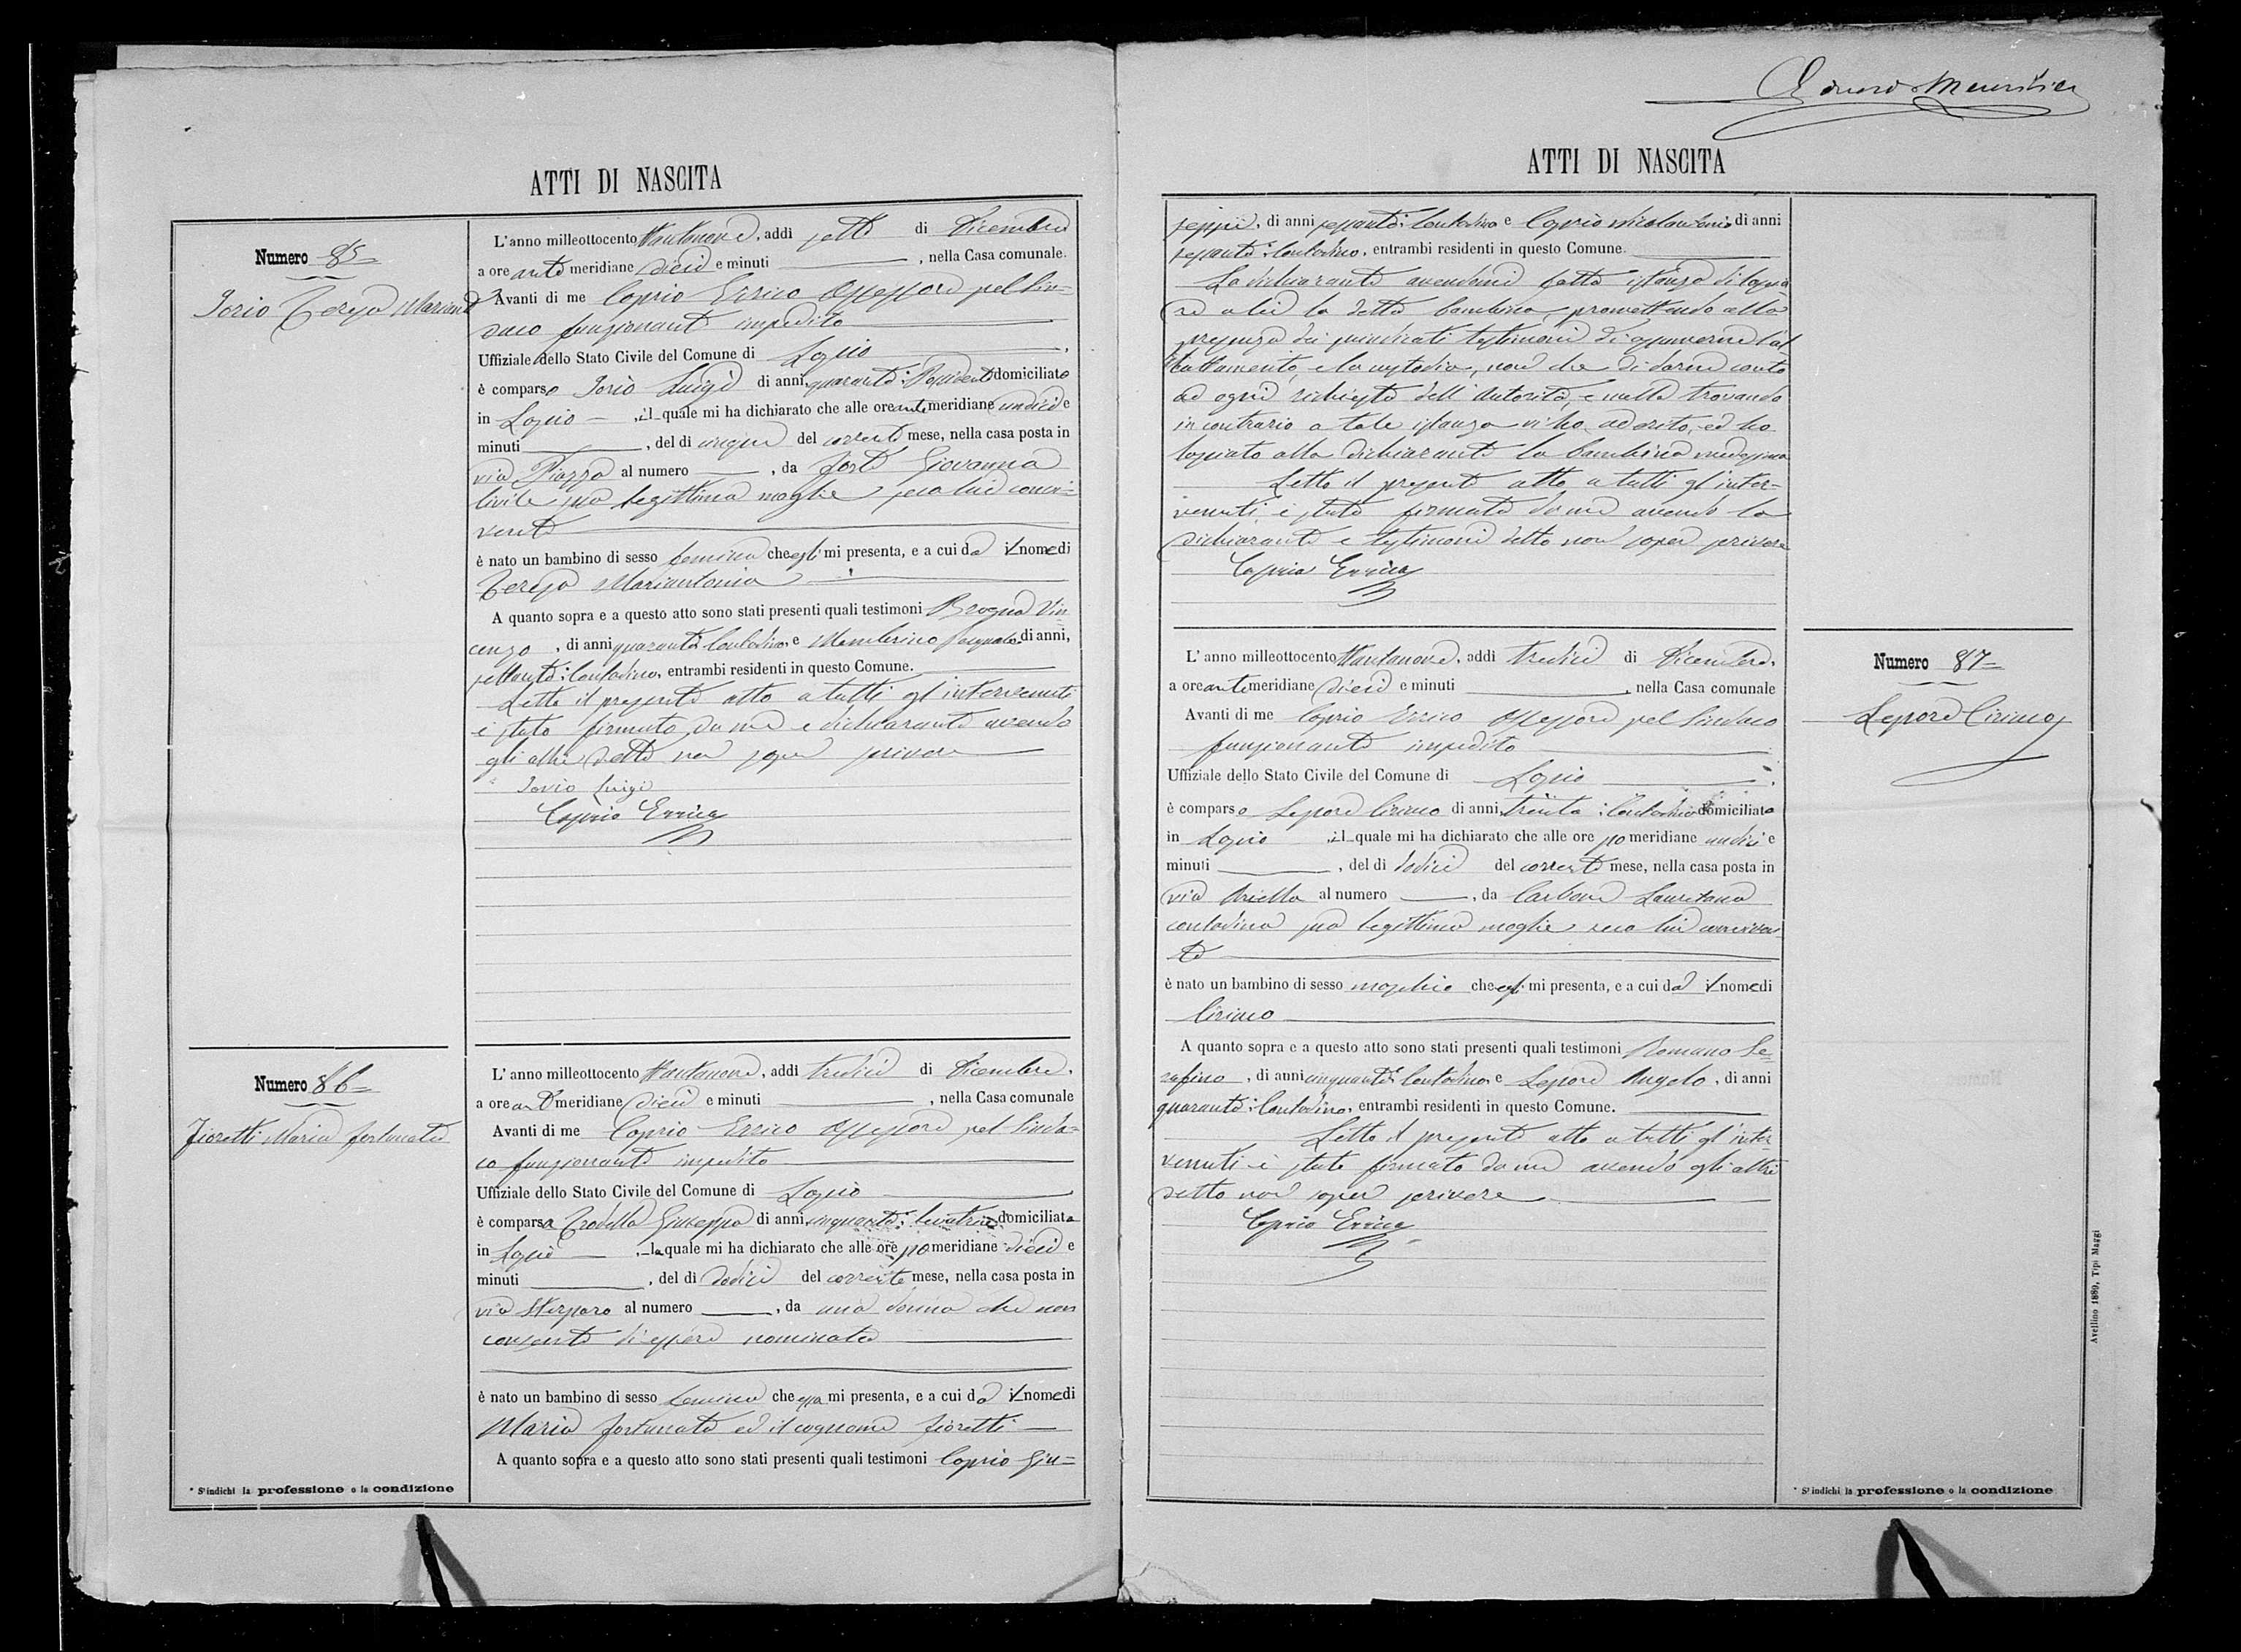 ATTI DI NASCITA
Numero 85
Iorio Teresa Mariant
L'anno milleottocento ottantanove, addì sette di Dicembre
a ore ante meridiane dieci e minuti , nella Casa comunale.
Avanti di me Caprio Errico Assessore pel Sin=
daco funzionante impedito
Uffiziale dello Stato Civile del Comune di Lapio ,
è comparso Iorio Luigi di anni quaranta: Possidente domiciliato
in Lapio , il quale mi ha dichiarato che alle ore ante meridiane undici e
minuti , del dì cinque del corrente mese, nella casa posta in
via Piazza al numero , da Forte Giovanna
Civile sua legittima moglie, seco lui convi=
vente
è nato un bambino di sesso femina che egli mi presenta, e a cui dà il nome di
Teresa Mariantonia
A quanto sopra e a questo atto sono stati presenti quali testimoni Brogna Vin
cenzo , di anni quaranta Contadino, e Pasquale di anni,
settanta: Contadino, entrambi residenti in questo Comune.
Letto il presente atto a tutti gl'intervenuti
è stato firmato da me e dichiarante avendo
gli altri detto non saper scrivere
Iorio Luigi
Caprio Errico
Numero 86
Fioretti Maria Fortunata
L'anno milleottocento ottantanove, addì tredici di Dicembre,
a ore ante meridiane dieci e minuti , nella Casa comunale
Avanti di me Caprio Errico Assessore pel Sinda=
co funzionante impedito
Uffiziale dello Stato Civile del Comune di Lapio
è comparsa Giuseppa di anni cinquanta: levatrice domiciliata
in Lapio , la quale mi ha dichiarato che alle ore po meridiane dieci e
minuti , del dì dodici del corrente mese, nella casa posta in
via al numero , da una donna che non
consente di essere nominata
è nato un bambino di sesso femina che essa mi presenta, e a cui dà il nome di
Maria Fortunata ed il cognome Fioretti
A quanto sopra e a questo atto sono stati presenti quali testimoni Caprio Giu=
* S'indichi la professione o la condizione
ATTI DI NASCITA
seppe, di anni sessanta: Contadino e Caprio Nicolantonio di anni
sessanta: Contadino, entrambi residenti in questo Comune.
La dichiarante avendomi fatto istanza di lascia
re a lei la detta bambina, promettendo alla
presenza dei suindicati testimoni di assumerne l'al=
lattamento, e la custodia, non che di darne conto
ad ogni richiesta dell'Autorità, e nulla trovando
in contrario a tale istanza vi ho aderito, ed ho
lasciato alla dichiarante la bambina medesima
Letto il presente atto a tutti gl'inter=
venuti è stato firmato da me avendo la
dichiarante e testimoni detto non saper scrivere
Caprio Errico
L'anno milleottocento ottantanove, addì tredici di Dicembre,
a ore ante meridiane dieci e minuti , nella Casa comunale
Avanti di me Caprio Errico Assessore pel Sindaco
funzionante impedito
Uffiziale dello Stato Civile del Comune di Lapio .
è comparso Lepore Cirino di anni trenta: Contadino domiciliato
in Lapio , il quale mi ha dichiarato che alle ore po meridiane undici e
minuti , del dì dodici del corrente mese, nella casa posta in
via al numero , da Carbone Lauretana
contadina sua legittima moglie, seco lui conviven=
te
è nato un bambino di sesso maschio che egli mi presenta, e a cui dà il nome di
Cirino
A quanto sopra e a questo atto sono stati presenti quali testimoni Romano Se=
rafino , di anni cinquanta: Contadino, e Lepore Angelo , di anni
quaranta: Contadino, entrambi residenti in questo Comune.
Letto il presente atto a tutti gl'inter
venuti è stato firmato da me avendo gli altri
detto non saper scrivere
Caprio Errico
Numero 87
Lepore Cirino
* S'indichi la professione o la condizione
Avellino 1889, Tipi Maggi